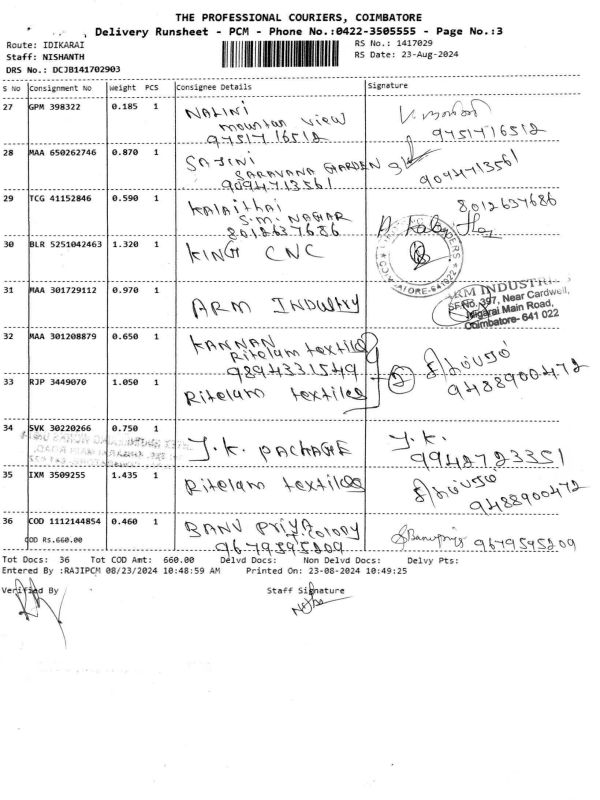 THE PROFESSIONAL COURIERS, COIMBATORE
Delivery Runsheet - PCM - Phone No.:0422-3505555 - Page No.:3
Route: IDIKARAI
RS No.: 1417029
Staff: NISHANTH
RS Date: 23-Aug-2024
DRS No.: DCJB141702903
S No Consignment No Weight PCS Consignee Details Signature
27 GPM 398322 0.185 1 NALINI
mountan view
9751716512 9751716512
28 MAA 650262746 0.870 1 SAJINI
SARAVANA GARDEN
9094713561 9094713561
29 TCG 41152846 0.590 1 Kalaithai 8012637686
S.M. NAGAR
8012637686
30 BLR 5251042463 1.320 1 KING CNC
31 MAA 301729112 0.970 1 ARM INDUltry
ARM INDUSTRIES
SF.No. 397, Near Cardwell,
Main Road,
Coimbatore- 641 022
32 MAA 301208879 0.650 1 KANNAN
Ritelam textiles
9894331549 9488900472
33 RJP 3449070 1.050 1 Ritelam textiles
34 SVK 30220266 0.750 1 J.K. PACHAGE J.K.
9942723351
35 IXM 3509255 1.435 1 Ritelam textiles 9488900472
36 COD 1112144854 0.460 1 BANU PRIYA
Colony
COD Rs.660.00 9679595209 9679595209
Tot Docs: 36 Tot COD Amt: 660.00 Delvd Docs: Non Delvd Docs: Delvy Pts:
Entered By :RAJIPCM 08/23/2024 10:48:59 AM Printed On: 23-08-2024 10:49:25
Verified By Staff Signature